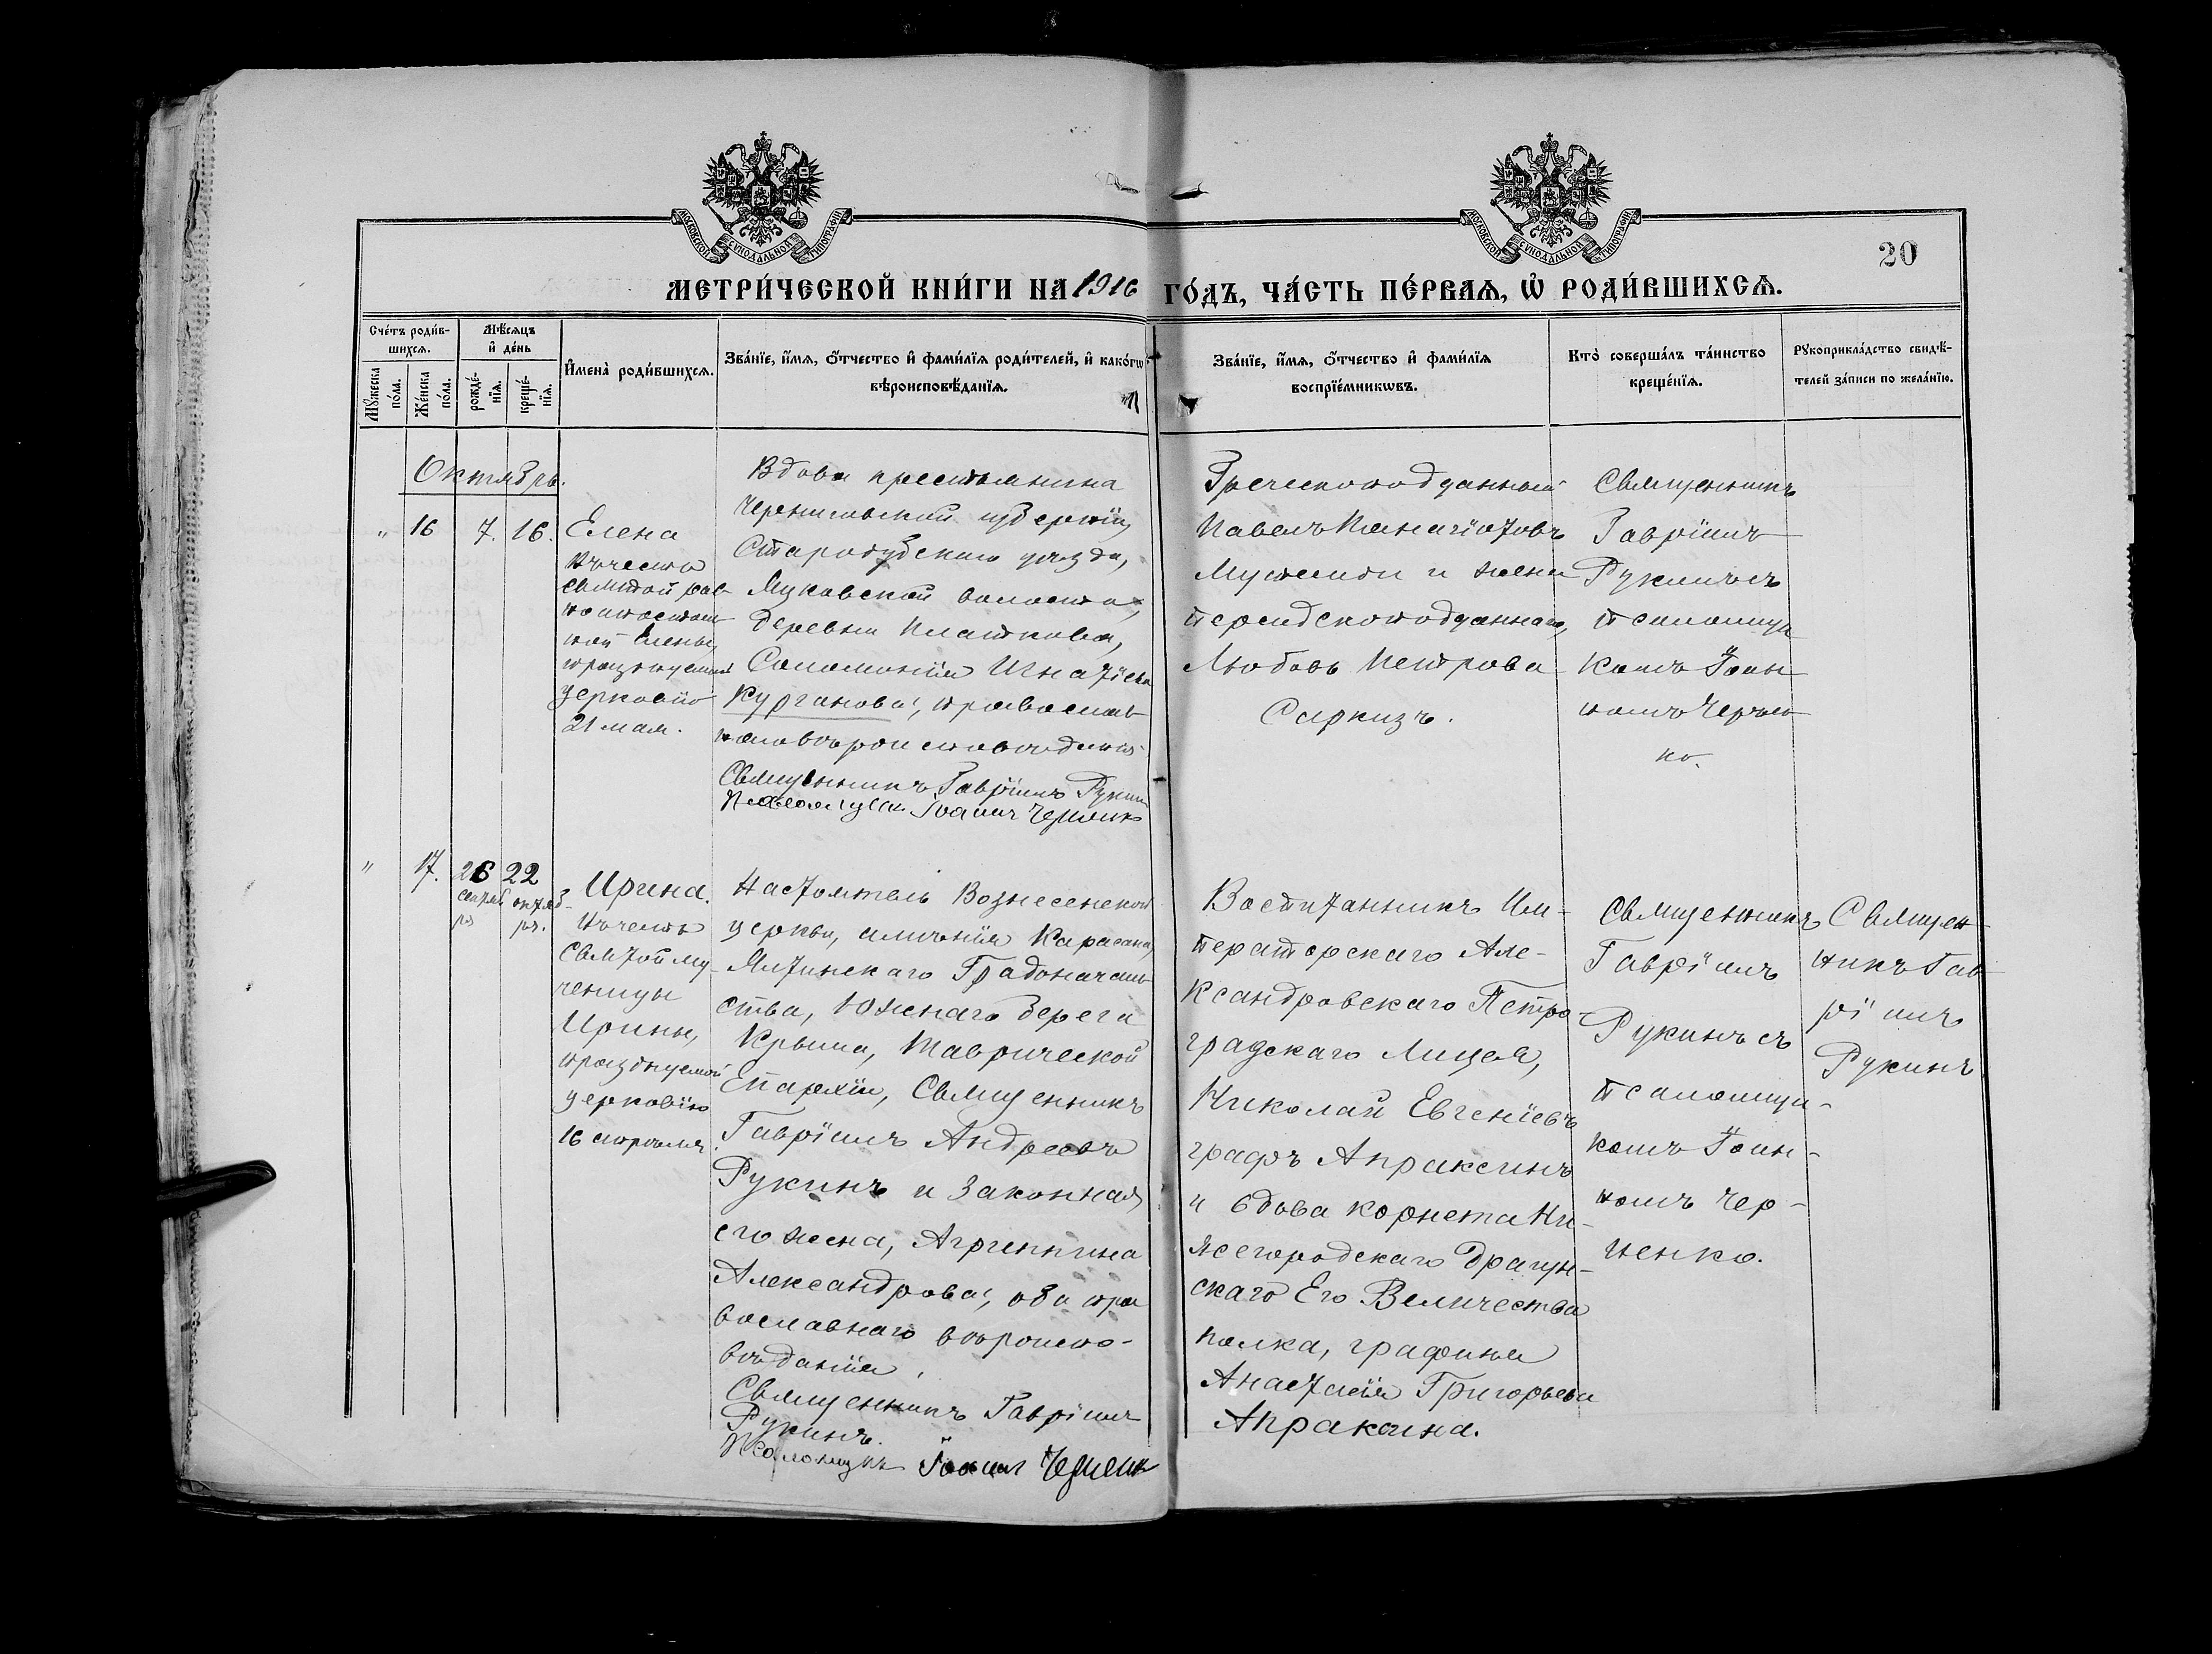 МОСКОВСКОЙ СѴНОДАЛЬНОЙ ТИПОГРАФІИ
МОСКОВСКОЙ СѴНОДАЛЬНОЙ ТИПОГРАФІИ
20
МЕТРИ́ЧЕСКОЙ КНИ́ГИ НА 1916 ГО́ДЪ, ЧА́СТЬ ПЕ́РВАѦ, Ѡ҆ РОДИ́ВШИХСѦ.
Сче́тъ роди́в-
шихсѧ.
Мѣ́сѧцъ
и҆ де́нь
Мꙋ́жеска
по́ла.
Же́нска
по́ла.
рожде́-
нїѧ.
креще́-
нїѧ.
И҆мена̀ роди́вшихсѧ.
Зва́нїе, и҆́мѧ, ѻ҆́тчество и҆ фами́лїѧ роди́телей, и҆ како́гѡ
вѣроисповѣ́данїѧ.
Зва́нїе, и҆́мѧ, ѻ҆́тчество и҆ фами́лїѧ
воспрїе́мникѡвъ.
Кто̀ соверша́лъ та́инство
креще́нїѧ.
Рꙋкоприкла́дство свидѣ́-
телей за́писи по жела́нїю.
Октябрь.
" 16 7. 16.
Елена
въ честь
святой рав-
ноапостоль-
ной Елены,
празднуемой
церковію
21 мая.
Вдова крестьянина
Черниговской губерніи,
Стародубскаго уѣзда,
волости,
деревни
Соломонія Игнатіева
Курганова, православ-
наго вѣроисповѣданія.
Священникъ Гавріилъ Рукинъ
Псаломщикъ Іоаннъ Черненко
Греческоподданный
Павелъ Панагіотовъ
и жена
персидскоподданнаго,
Любовь Петрова
Саркизъ.
Священникъ
Гавріилъ
Рукинъ съ
псаломщи
комъ Іоан-
номъ Чернен
ко.
" 17. 26 22
сентяб октяб-
ря ря.
Ирина.
Въ честь
Святой му-
ченицы
Ирины,
празднуемой
церковію
16 апрѣля.
Настоятель Вознесенской
церкви, имѣнія Карасана,
Ялтинскаго Градоначаль
ства, Южнаго берега
Крыма, Таврической
Епархіи, Священникъ
Гавріилъ Андреевъ
Рукинъ и законная
его жена, Агриппина
Александрова, оба пра
вославнаго вѣроиспо-
вѣданія.
Священникъ Гавріилъ
Рукинъ.
Псаломщикъ Іоаннъ Черненко
Воспитанникъ Им-
ператорскаго Але-
ксандровскаго Петро-
градскаго Лицея,
Николай Евгеніевъ
графъ Апраксинъ
и вдова корнета Ни-
жегородскаго драгун-
скаго Его Величества
полка, графиня
Анастасія Григорьева
Апраксина.
Священникъ
Гавріилъ
Рукинъ съ
псаломщи-
комъ Іоан-
номъ Чер-
ненко.
Священ-
никъ Гав-
ріилъ
Рукинъ